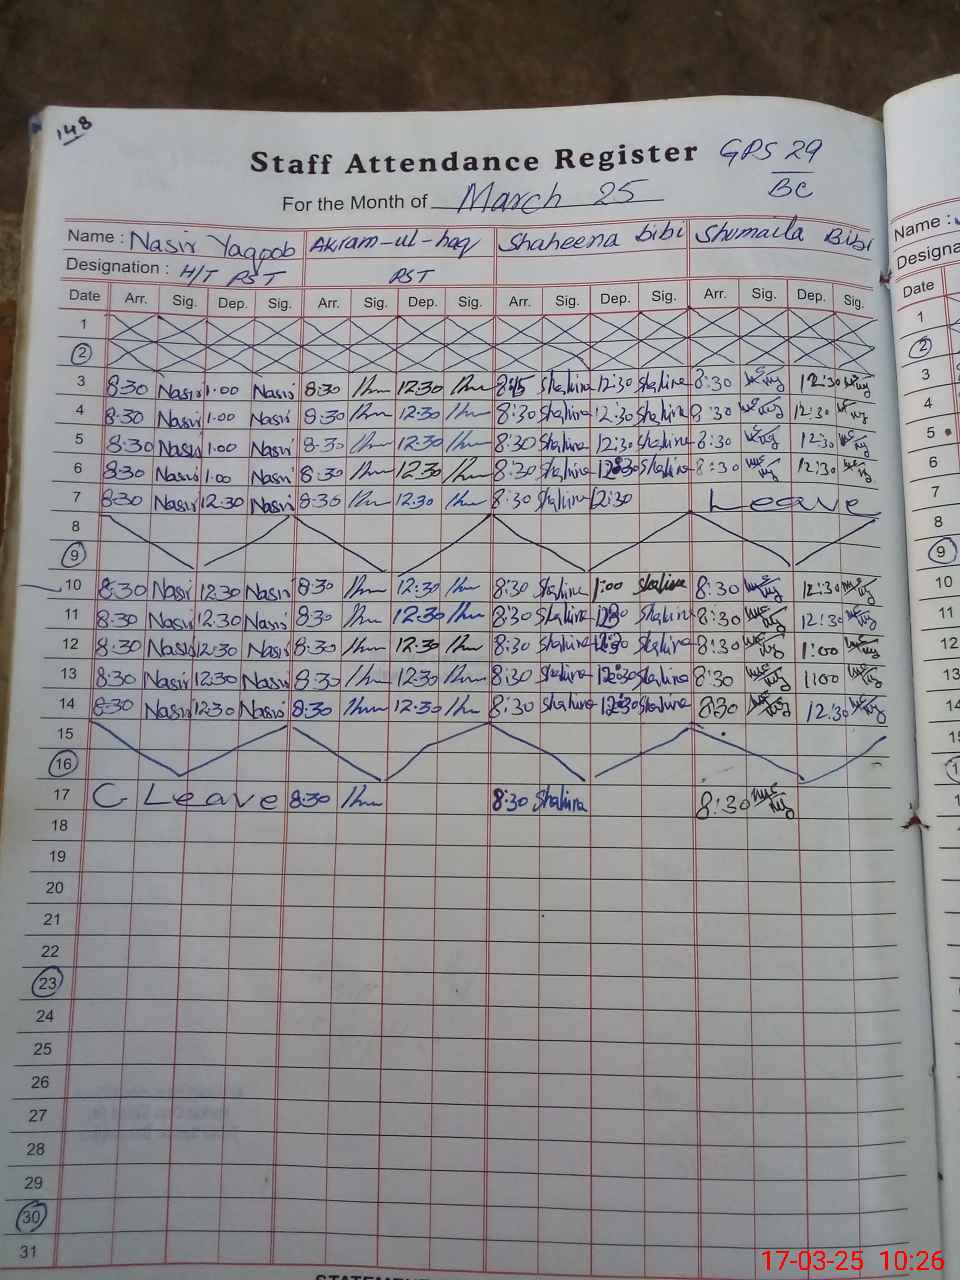 148
Staff Attendance Register GPS 29
BC
For the Month of March 25
Name : Nasir Yaqoob Akram-ul-haq Shaheena bibi Shumaila Bibi
Designation : H/T PST PST
Date Arr. Sig. Dep. Sig. Arr. Sig. Dep. Sig. Arr. Sig. Dep. Sig. Arr. Sig. Dep. Sig.
1
2
3 8:30 Nasir 1:00 Nasir 8:30 12:30 8:15 Shahina 12:30 Shahina 8:30 12:30
4 8:30 Nasir 1:00 Nasir 8:30 12:30 8:30 Shahina 12:30 Shahina 8:30 12:30
5 8:30 Nasir 1:00 Nasir 8:30 12:30 8:30 Shahina 12:30 Shahina 8:30 12:30
6 8:30 Nasir 1:00 Nasir 8:30 12:30 8:30 Shahina 12:30 Shahina 8:30 12:30
7 8:30 Nasir 12:30 Nasir 8:30 12:30 8:30 Shahina 12:30 Leave
8
9
10 8:30 Nasir 12:30 Nasir 8:30 12:30 8:30 Shahina 1:00 Shahina 8:30 12:30
11 8:30 Nasir 12:30 Nasir 8:30 12:30 8:30 Shahina Shahina 8:30 12:30
12 8:30 Nasir 12:30 Nasir 8:30 12:30 8:30 Shahina Shahina 8:30 1:00
13 8:30 Nasir 12:30 Nasir 8:30 12:30 8:30 Shahina 12:30 Shahina 8:30 1:00
14 8:30 Nasir 12:30 Nasir 8:30 12:30 8:30 Shahina 12:30 Shahina 8:30 12:30
15
16
17 C Leave 8:30 8:30 Shahina 8:30
18
19
20
21
22
23
24
25
26
27
28
29
30
31
Name :
Designa
Date
1
2
3
4
5
6
7
8
9
10
11
12
13
14
15
17
18
19
20
21
22
23
24
25
26
27
28
29
30
31
17-03-25 10:26